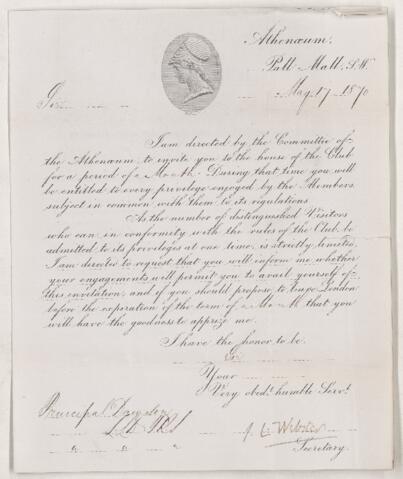 Athenæum,
Pall Mall, S.W.
May 17 1870
Sir
I am directed by the Committee of
the Athenæum, to invite you to the house of the Club
for a period of a Month. During that time you will
be entitled to every privilege enjoyed by the Members
subject in common with them to its regulations
As the number of distinguished Visitors
who can in conformity with the rules of the Club, be
admitted to its privileges at one time, is strictly limited
I am directed to request that you will inform me whether
your engagements will permit you to avail yourself of
this invitation, and if you should propose to leave London
before the expiration of the term of a Month that you
will have the goodness to apprize me.
I have the honor to be.
Sir
Your
Very obedt. humble Servt.
Principal Dawson
J. C. Webster
Secretary.